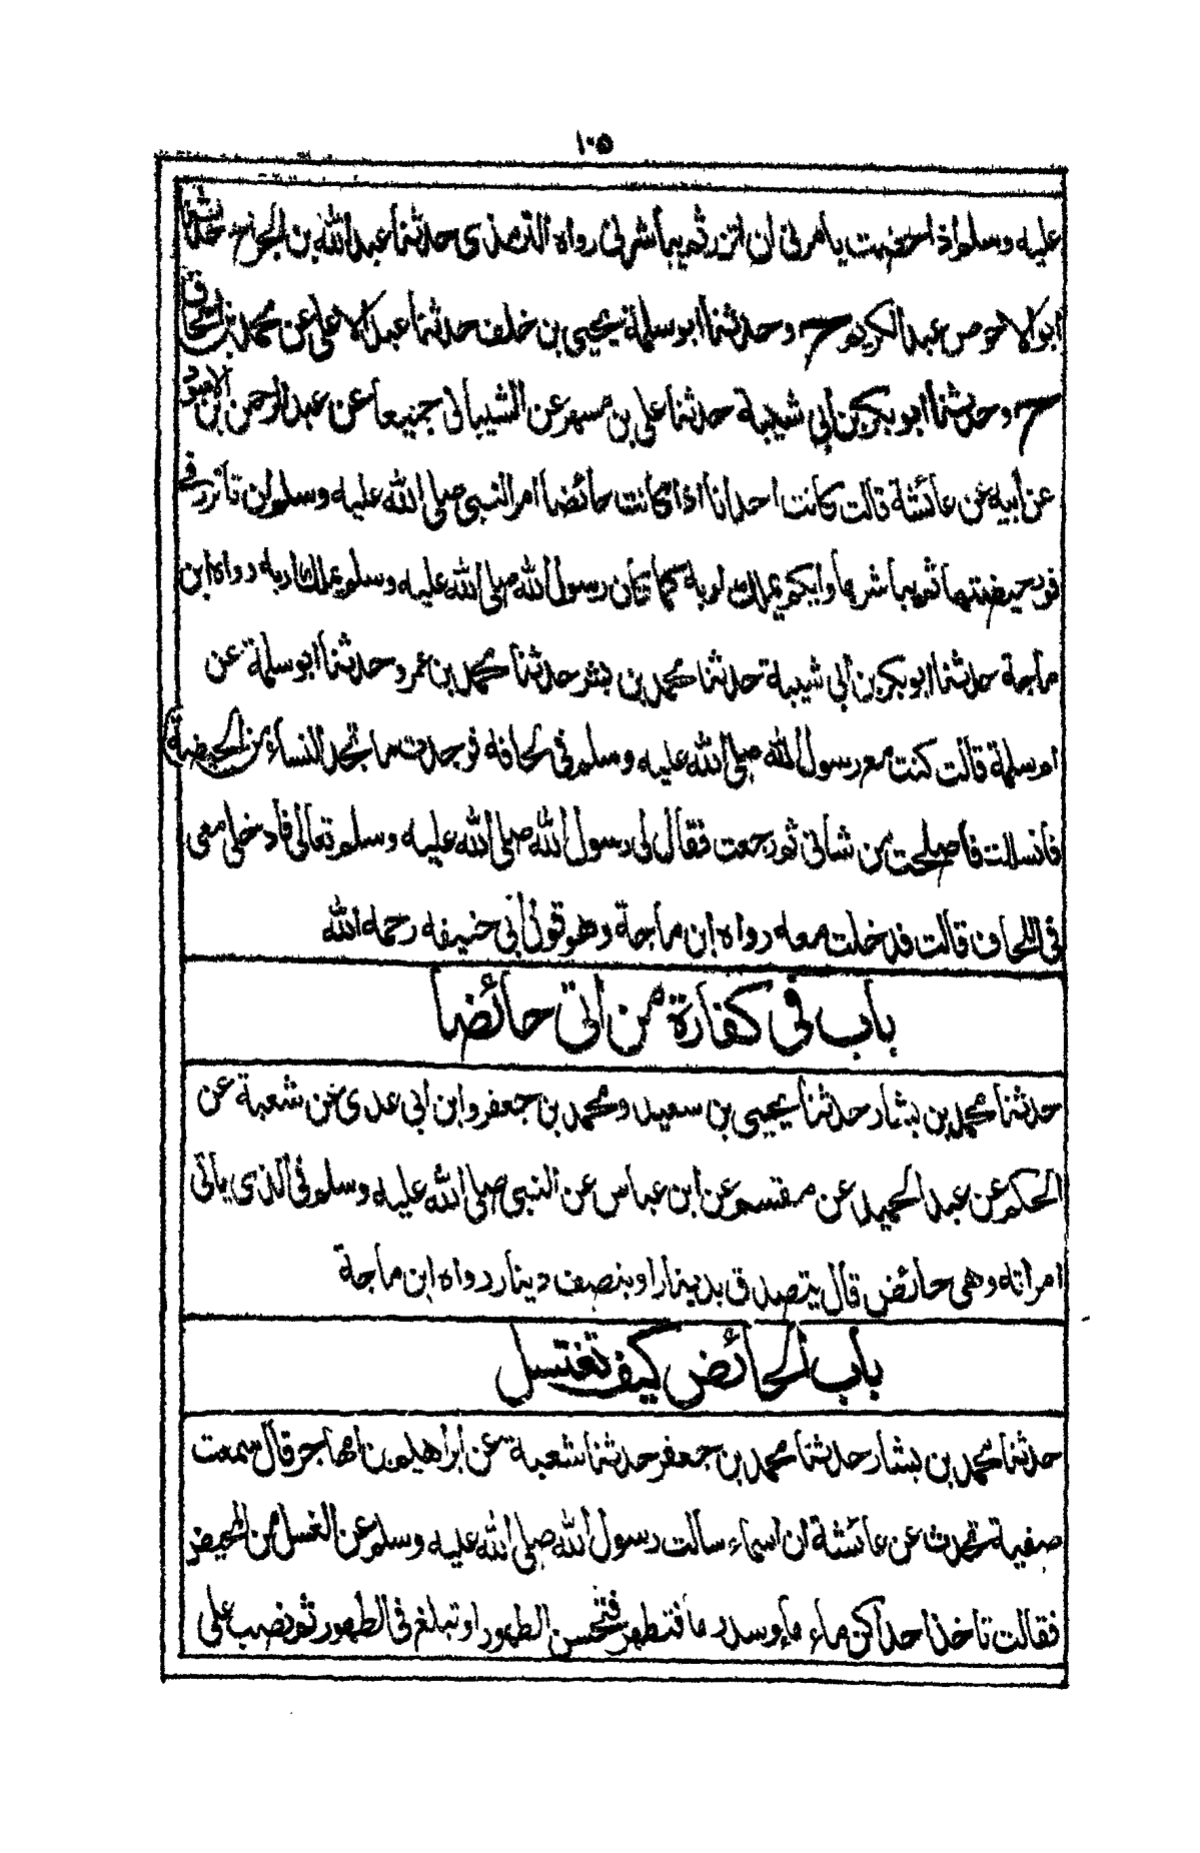 ١٠٥
عليه وسلم اذا حضت يأمرني ان اتزر ثم يباشرني رواه الترمذى حدثنا عبد الله بن الجراح حدثنا
ابو الاحوص عبد الكريم ح وحدثنا ابو سلمة يحيى بن خلف حدثنا عبد الاعلى عن محمد بن اسحاق
ح وحدثنا ابو بكر بن أبي شيبة حدثنا علي بن مسهر عن الشيباني جميعا عن عبد الرحمن بن الاسود
عن أبيه عن عائشة قالت كانت احدانا اذا كانت حائضا امر النبي صلى الله عليه وسلم ان تأتزر في
فور حيضتها ثم يباشرها وايكم يملك اربه كما كان رسول الله صلى الله عليه وسلم يملك اربه رواه ابن
ماجة حدثنا ابو بكر بن أبي شيبة حدثنا محمد بن بشر حدثنا محمد بن عمرو حدثنا ابو سلمة عن
ام سلمة قالت كنت مع رسول الله صلى الله عليه وسلم في لحافه فوجدت ما تجد النساء من الحيضة
فانسللت فأصلحت من شاني ثم رجعت فقال لى رسول الله صلى الله عليه وسلم تعالى فادخلي معي
في اللحاف قالت فدخلت معه رواه ابن ماجة وهو قول أبي حنيفه رحمه الله
باب في كفارة من اتى حائضا
حدثنا محمد بن بشار حدثنا يحيى بن سعيد ومحمد بن جعفر وابن ابي عدى عن شعبة عن
الحكم عن عبد الحميد عن مقسم عن ابن عباس عن النبي صلى الله عليه وسلم في الذى يأتي
امراته وهى حائض قال يتصدق بدينار او بنصف دينار رواه ابن ماجة
باب الحائض كيف تغتسل
حدثنا محمد بن بشار حدثنا محمد بن جعفر حدثنا شعبة عن ابراهيم بن المهاجر قال سمعت
صفية تحدث عن عائشة ان اسماء سالت رسول الله صلى الله عليه وسلم عن الغسل من المحيض
فقالت تاخذ احداكن ماء وسدر فتطهر فتحسن الطهور او تبلغ في الطهور ثم نصب على